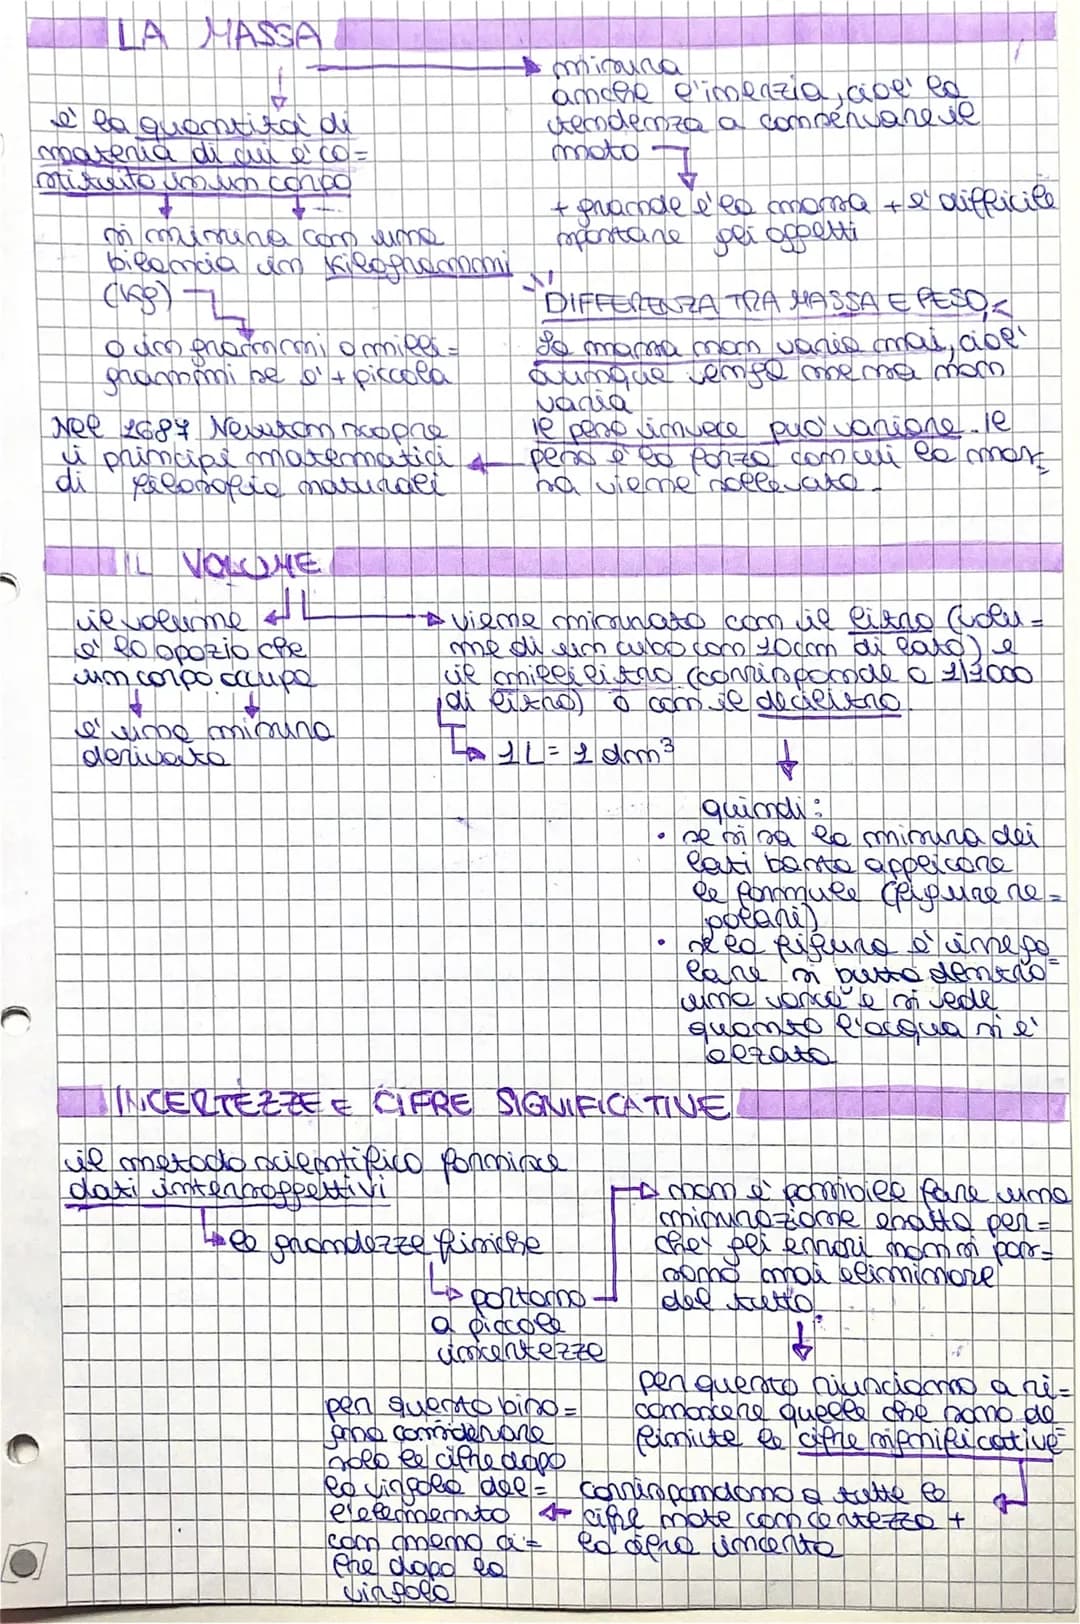 LA MASSA
misura
anche l'inerzia, cioè la
tendenza a conservare il
moto
+ grande è la massa + è difficile
spostare gli oggetti
è la quantità di
materia di cui è co=
stituito un un corpo
si misura con una
bilancia in Kilogrammi
(Kg)
o in grammi o milli=
grammi se è + piccola
DIFFERENZA TRA MASSA E PESO
la massa non varia mai, cioè
ovunque venga messa non
varia
il peso invece può variare. Il
peso è la forza con cui la mas=
sa viene sollevata.
Nel 1687 Newton scopre
i principi matematici
di filosofia naturali
IL VOLUME
il volume
è lo spazio che
un corpo occupa
è una misura
derivata
viene misurato con il litro (volu=
me di un cubo con 10cm di lato) e
il millilitro (corrisponde a 1/1000
di litro) o con il decilitro
1L = 1 dm³
quindi:
• se si sa la misura dei
lati basta applicare
le formule (figure re=
golari)
• se la figura è irrego=
lare si butta dentro
una vasca e si vede
quanto l'acqua si è
alzata
INCERTEZZE E CIFRE SIGNIFICATIVE
il metodo scientifico fornisce
dati interoggettivi
le grandezze fisiche
portano
a piccole
incertezze
non è possibile fare una
misurazione esatta per=
chè gli errori non si pos=
sono mai eliminare
del tutto.
per questo riusciamo a ri=
conoscere quelle che sono de
finite le cifre significative
corrispondono a tutte le
cifre note con certezza +
la cifra incerta
per questo biso=
gna considerare
solo le cifre dopo
la virgola del=
l'elemento
con meno ci=
fre dopo la
virgola